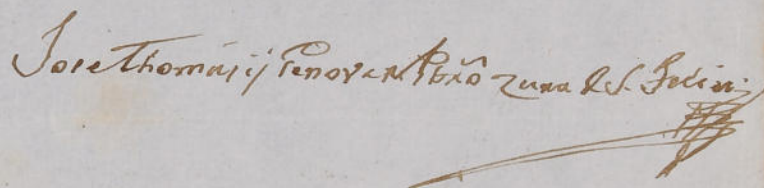 Jose Thomás ij Genover Pbrô Cura de S. Felix